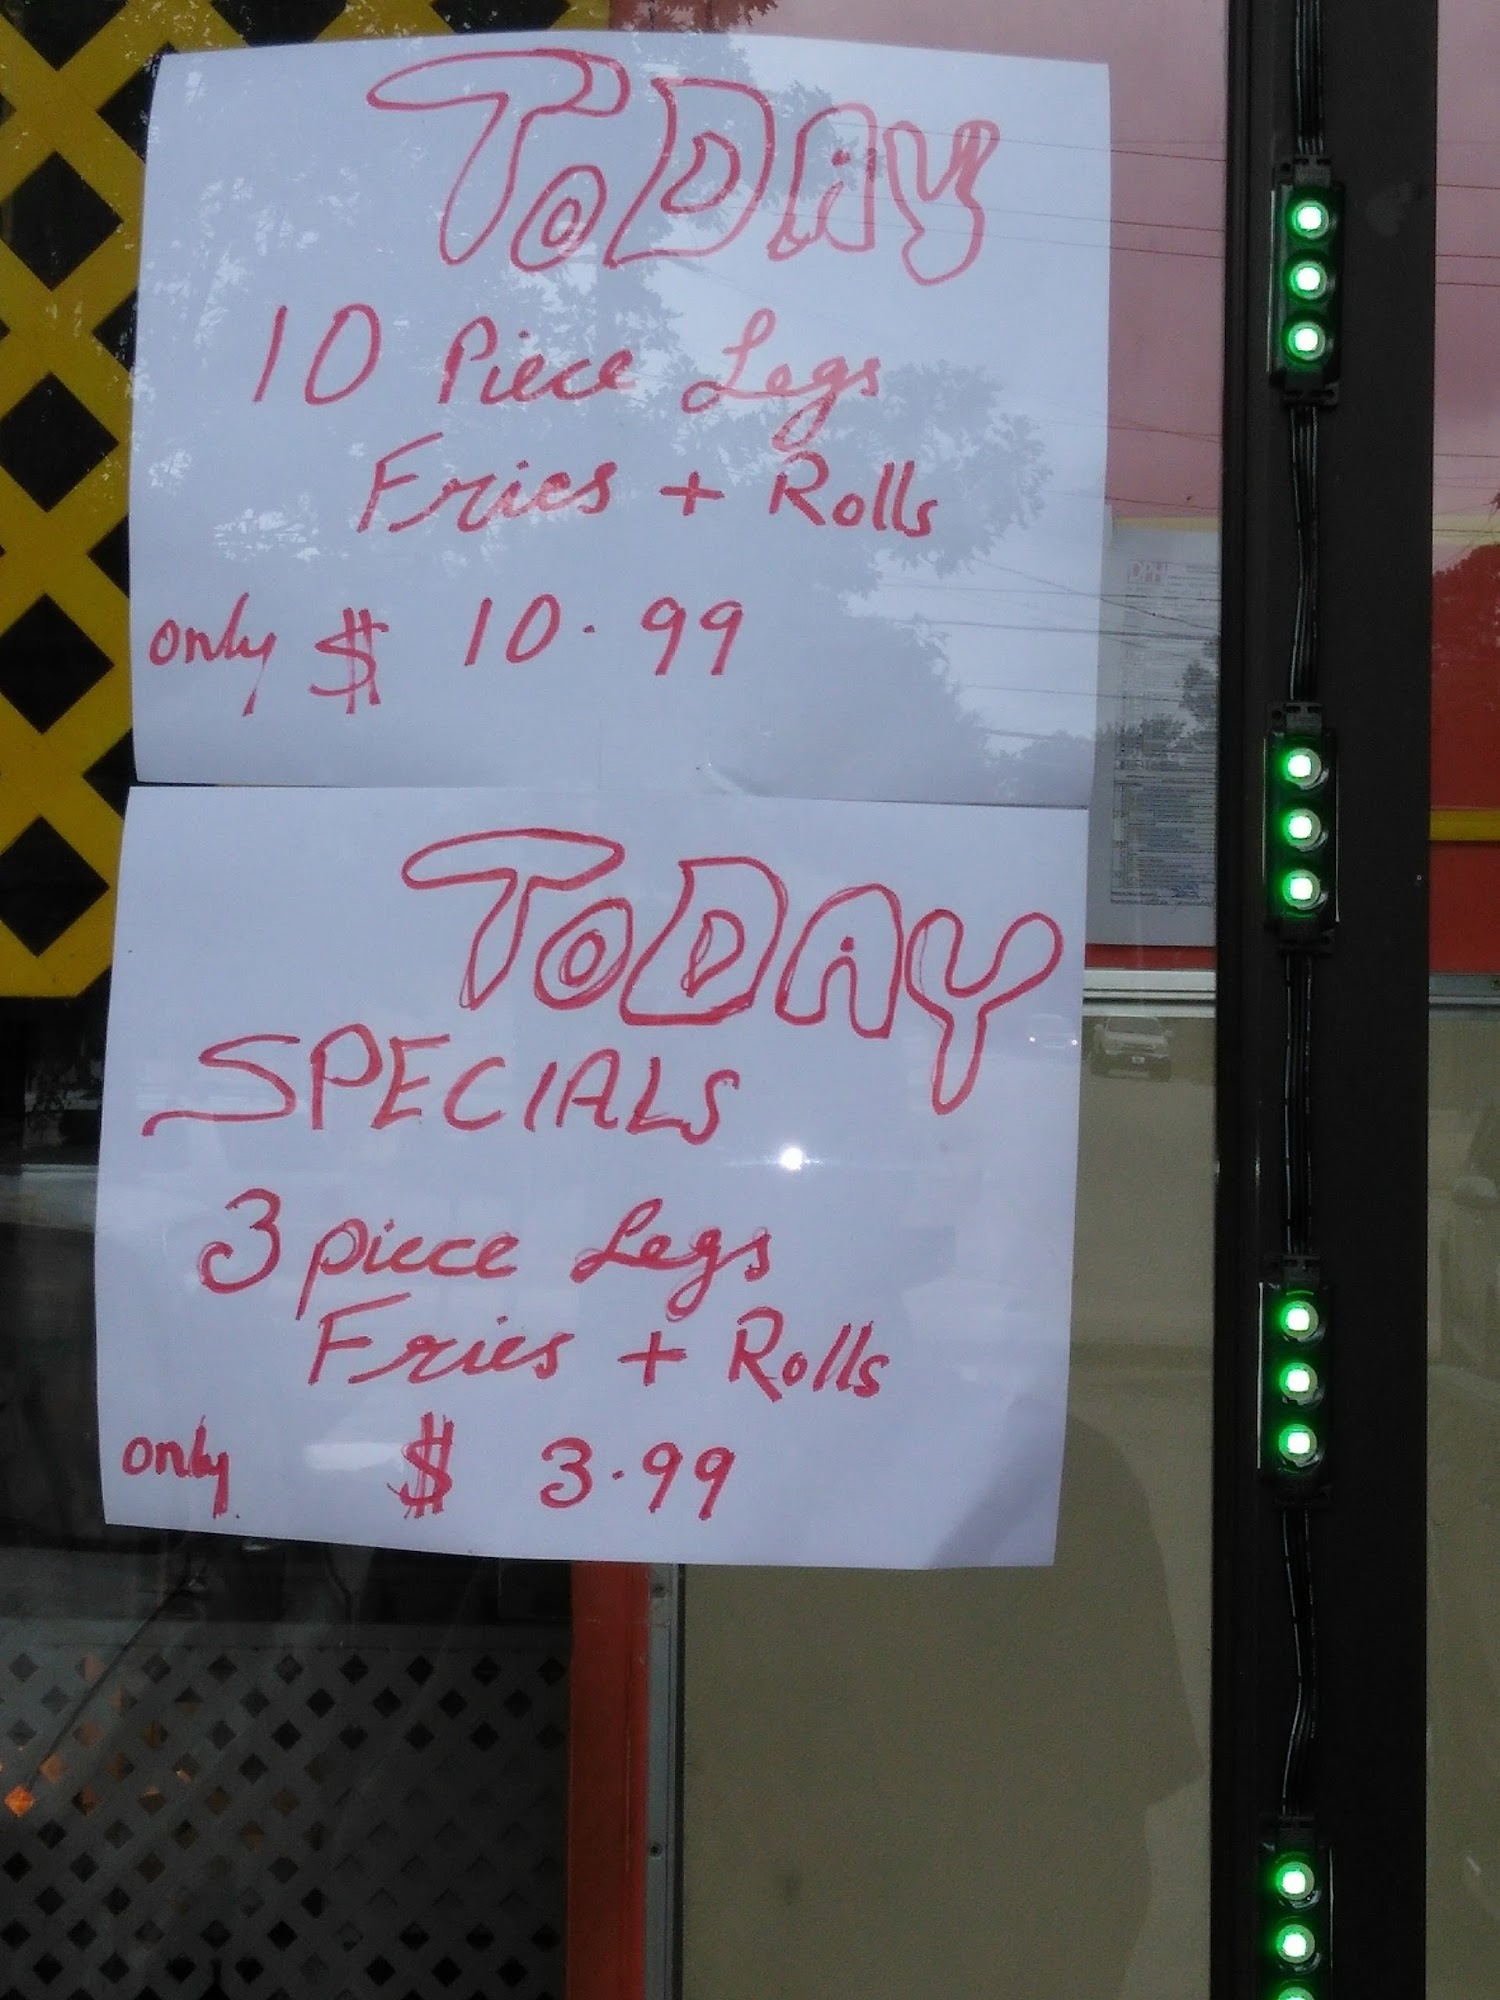 ToDAY
10 Piece Legs
Fries + Rolls
only $ 10.99
ToDAY
SPECIALS
3 piece Legs
Fries + Rolls
only $ 3.99